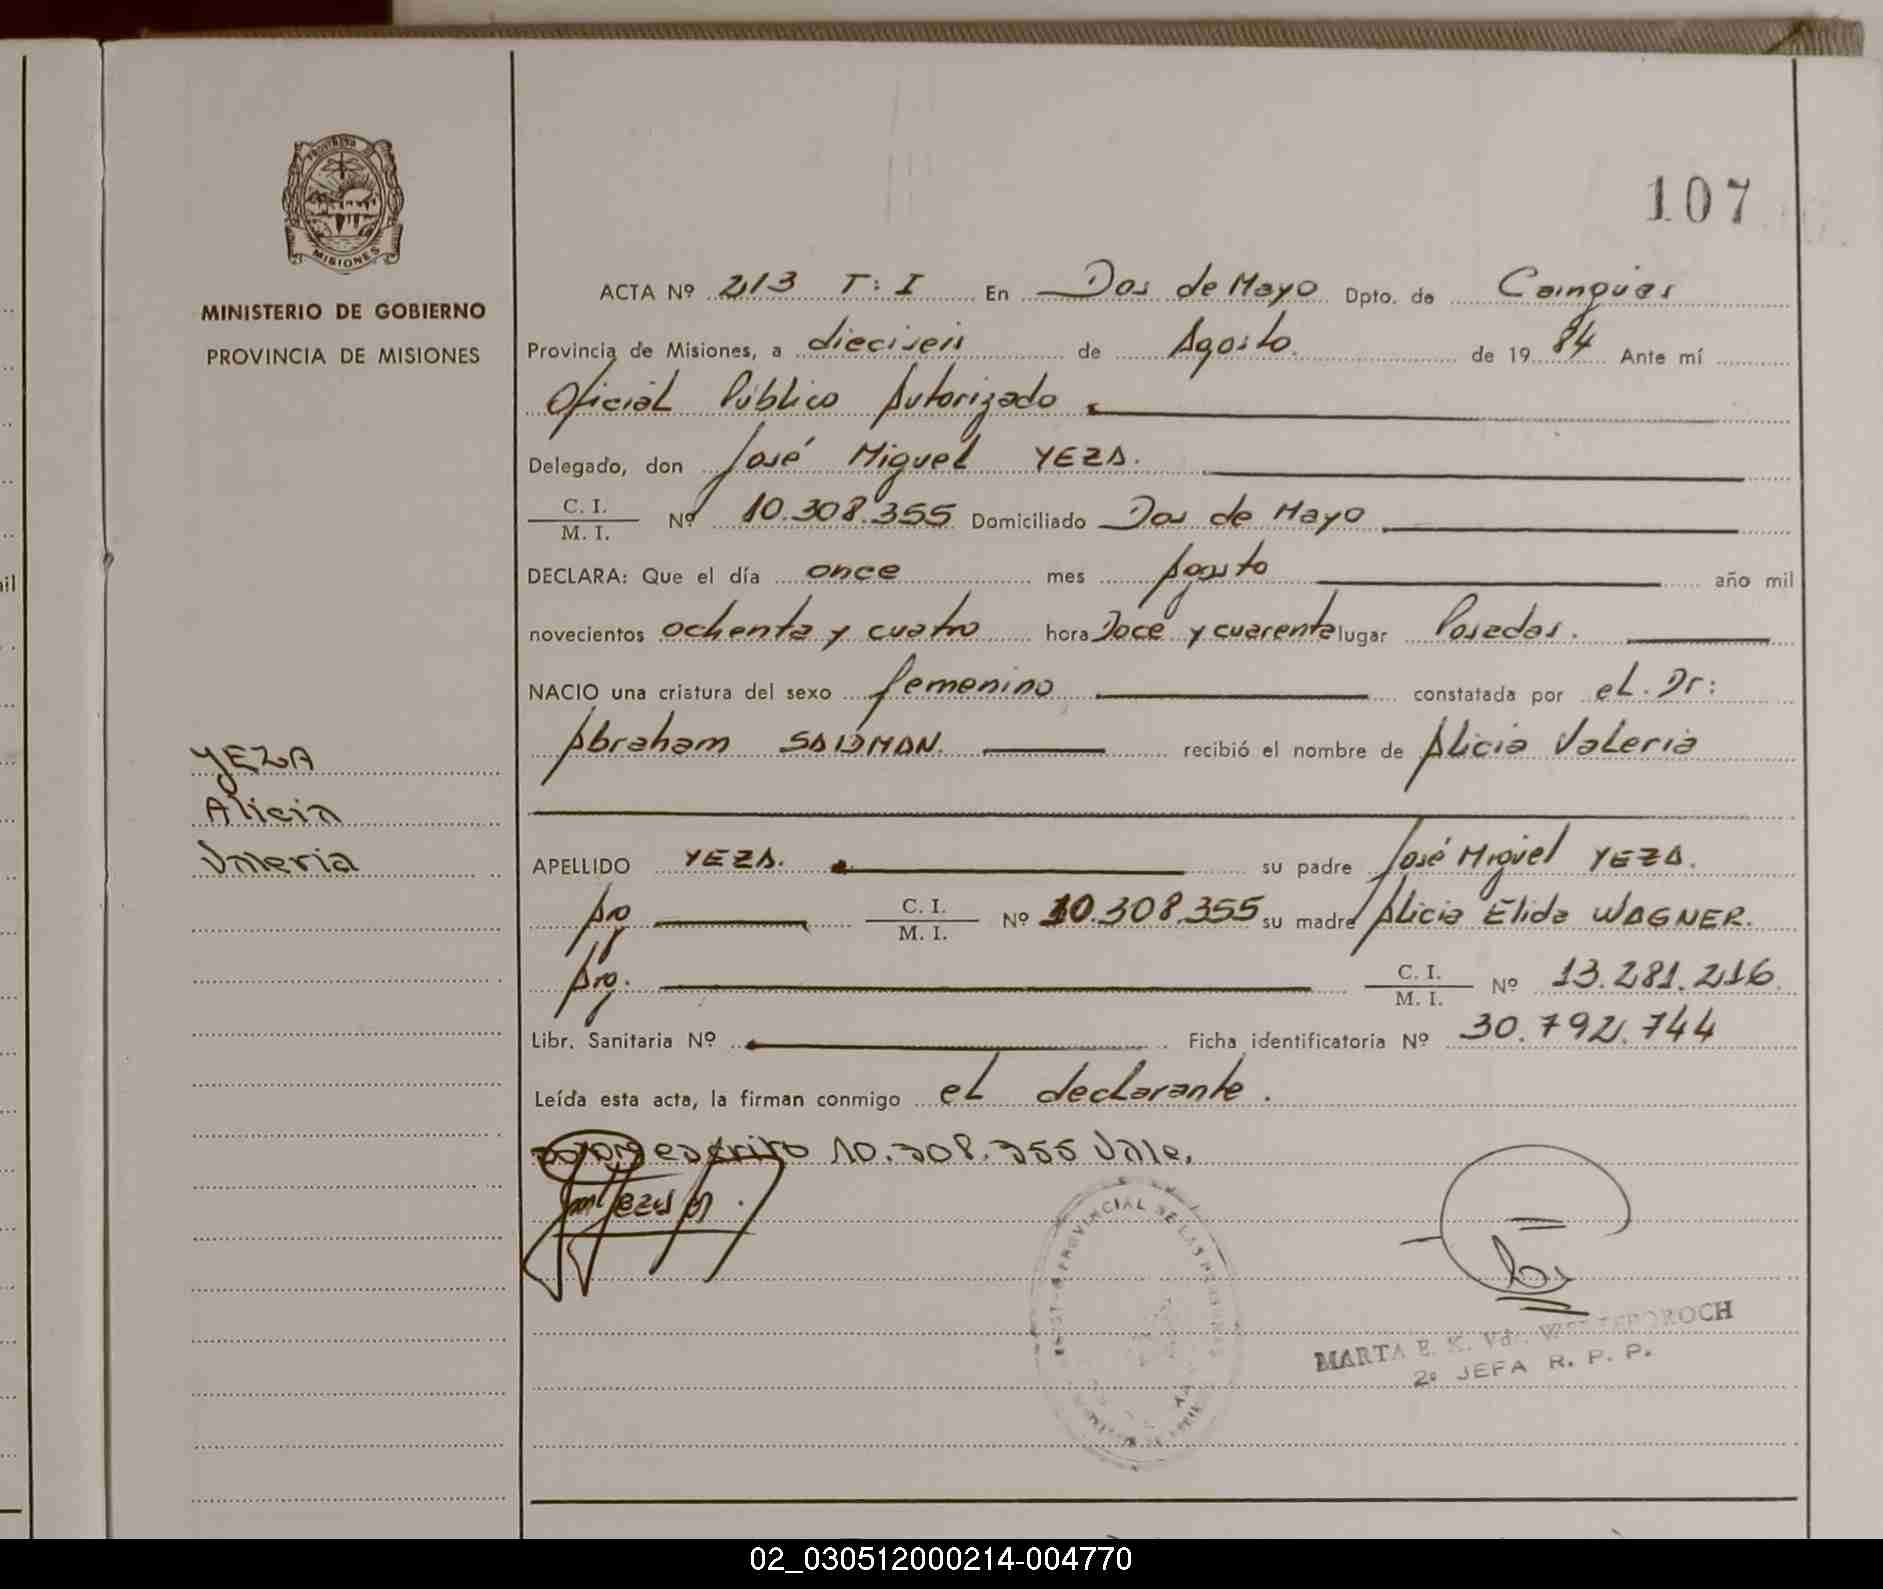 PROVINCIA DE
MISIONES
MINISTERIO DE GOBIERNO
PROVINCIA DE MISIONES
YEZA
Alicia
Valeria
107
ACTA Nº 213 T: I En Dos de Mayo Dpto. de Cainguas
Provincia de Misiones, a dieciseis de Agosto. de 19 84 Ante mí
Oficial Público Autorizado
Delegado, don José Miguel YEZA.
C. I.
M. I. Nº 10.308.355 Domiciliado Dos de Mayo
DECLARA: Que el día once mes Agosto año mil
novecientos ochenta y cuatro hora Doce y cuarenta lugar Posadas.
NACIO una criatura del sexo femenino constatada por el. Dr:
Abraham SAIDMAN. recibió el nombre de Alicia Valeria
APELLIDO YEZA. su padre José Miguel YEZA.
Arg C. I.
M. I. Nº 10.308.355 su madre Alicia Elida WAGNER.
Arg. C. I.
M. I. Nº 13.281.216
Libr. Sanitaria Nº Ficha identificatoria Nº 30.792.744
Leída esta acta, la firman conmigo el declarante.
escrito 10.308.355 Vale.
PROVINCIAL DE LAS
MARTA E. K. Vda.
2º JEFA R. P. P.
02_030512000214-004770